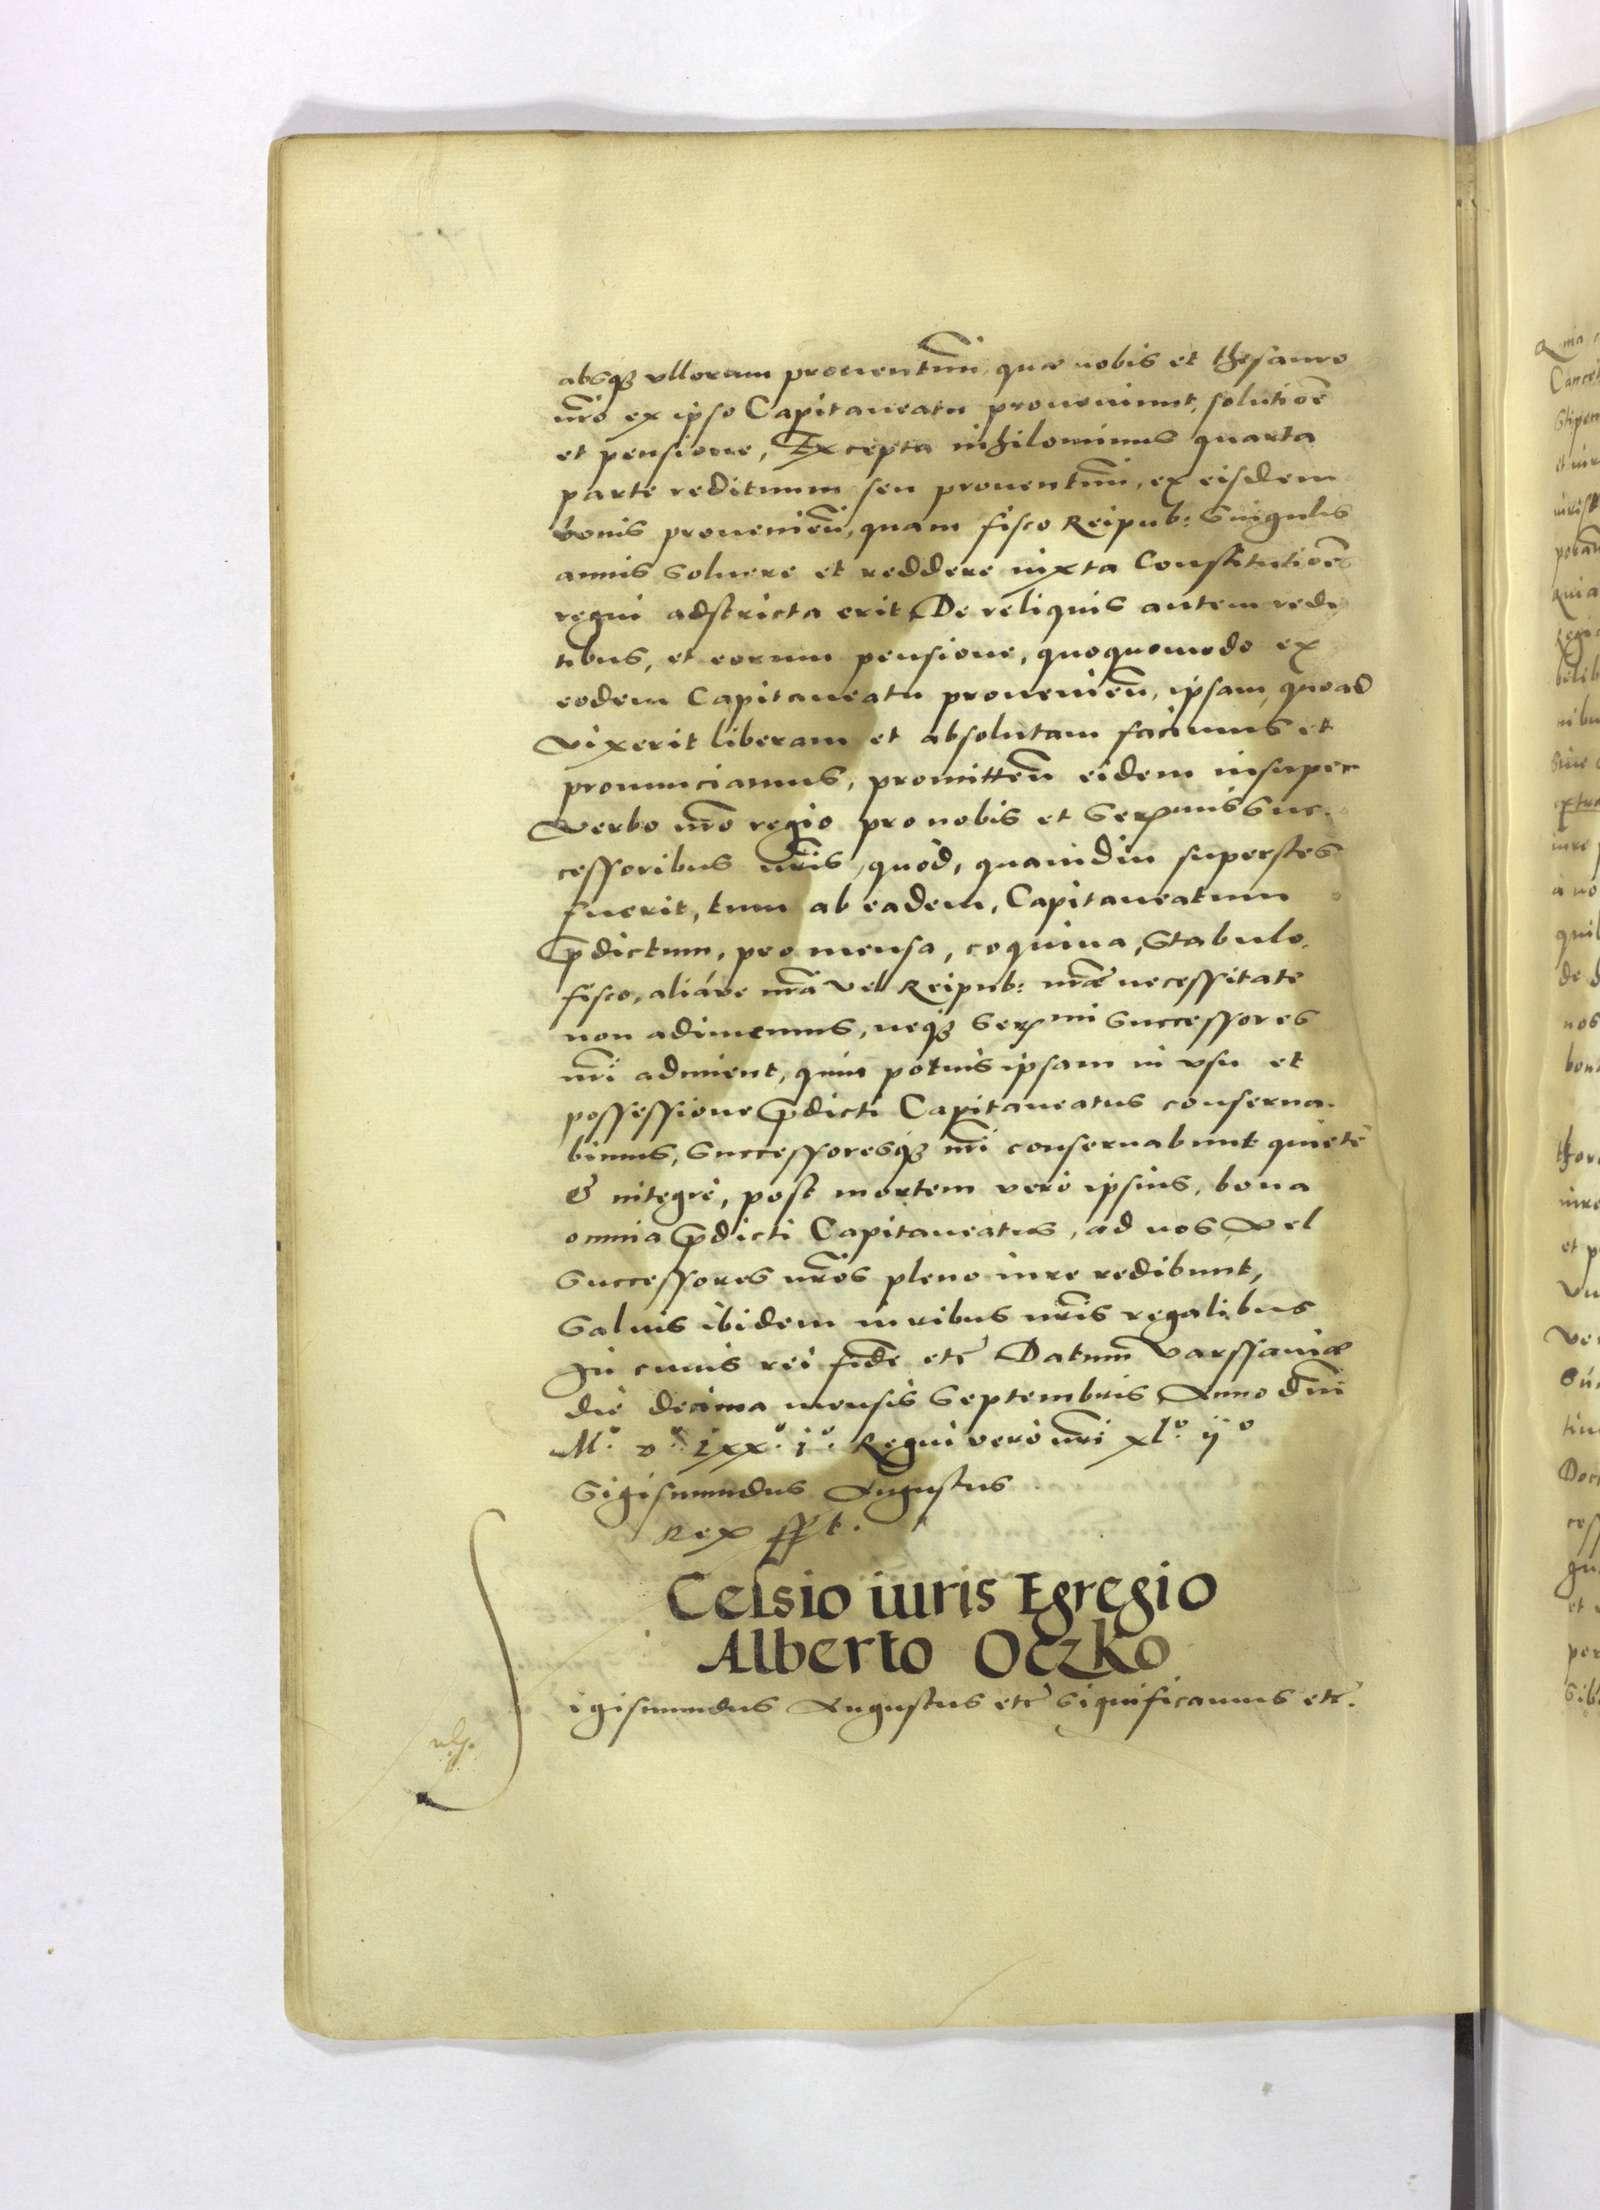 absq₃ ullorum prouentuu̅, quæ nobis et thesauro
nr̅o ex ipso Capitaneatu proueniunt, solutio̅e
et pensione, Excepta nihilominus quarta
parte redituum seu prouentuu̅, ex eisdem
bonis prouenien̅, quam fisco Reipub: singulis
annis soluere et reddere iuxta Constitutio̅es
regni adstricta erit, De reliquis autem redi
tibus, et eorum pensione, quoquomodo ex
eodem Capitaneatu prouenien̅, ipsam, quoad
vixerit liberam et absolutam facimus et
pronunciamus, promitten̅ eidem insuper
Verbo nr̅o regio pro nobis et Ser^mis suc.
cessoribus nr̅is, quòd, quamdiu superstes
fuerit, tum ab eadem, Capitaneatum
p̅dictum, pro mensa, coquina, stabulo,
fisco, aliáve nr̅a vel Reipub: nr̅æ necessitate
non adimemus, neq₃ Ser^mi successores
nr̅i adiment, quin potius ipsam in vsu et
possessione p̅dicti Capitaneatus conserua.
bimus, successoresq₃ nr̅i conseruabunt quietè
& integrè, post mortem verò ipsius, bona
omnia p̅dicti Capitaneatus, ad nos, vel
successores nr̅os pleno iure redibunt,
Saluis ibidem iuribus nr̅is regalibus
In cuius rei fide̅ etc̅ Datum Varssauiæ
die decima mensis Septembris Anno dn̅i
M.° D.° LXX.° i.° Regni verò nr̅i xl.° ij°
Sigismundus Augustus
Rex sspt.
Celsio iuris Egregio
Alberto Oczko
Sigismundus Augustus etc̅ significamus etc̅.